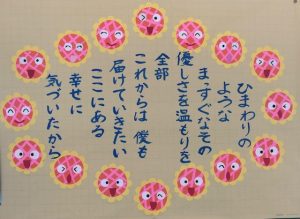 ひまわりの
ような
まっすぐなその
優しさを温もりを
全部
これからは僕も
届けていきたい
ここにある
幸せに
気づいたから